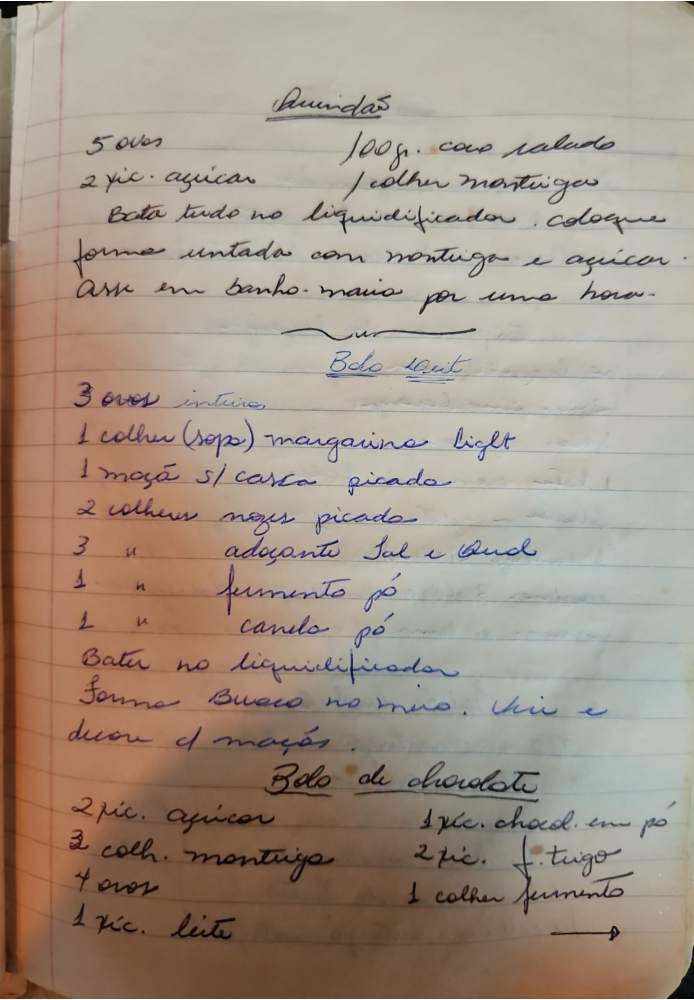 Quindão
5 ovos 100gr. coco ralado
2 xic. açúcar 1 colher manteiga
Bata tudo no liquidificador. coloque
forma untada com manteiga e açúcar.
Asse em banho-maria por uma hora.
Bolo
3 ovos inteiros
1 colher (sopa) margarina light
1 maçã s/ casca picada
2 colheres nozes picada
3 " adoçante Tal e Qual
1 " fermento pó
1 " canela pó
Bater no liquidificador
Forma Buraco no meio. Vire e
decore c/ maçãs.
Bolo de chocolate
2 xic. açúcar 1 xíc. chocol. em pó
3 colh. manteiga 2 xic. f. trigo
4 ovos 1 colher fermento
1 xíc. leite →